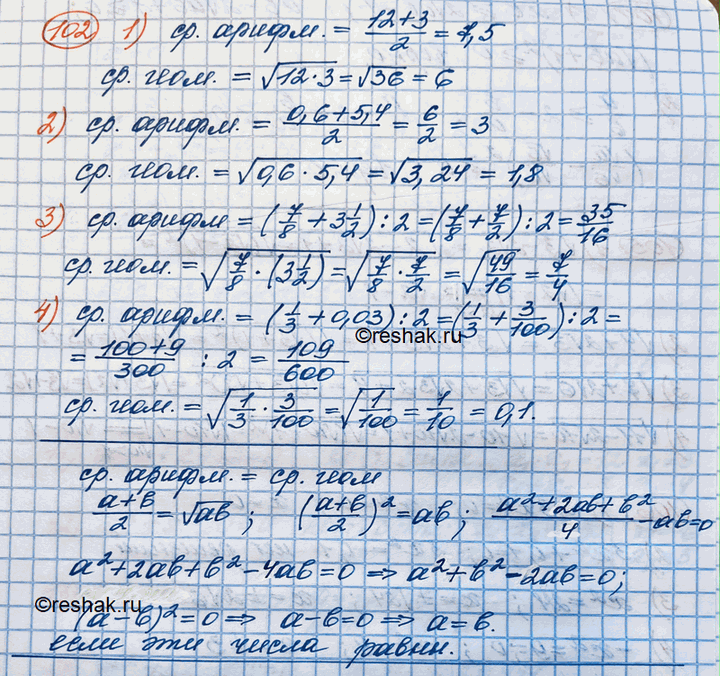 102 1) ср. арифм. = (12+3)/2 = 7,5
ср. геом. = √(12·3) = √36 = 6
2) ср. арифм. = (0,6+5,4)/2 = 6/2 = 3
ср. геом. = √(0,6·5,4) = √3,24 = 1,8
3) ср. арифм = (7/8 + 3 1/2) : 2 = (7/8 + 7/2) : 2 = 35/16
ср. геом. = √(7/8 · (3 1/2)) = √(7/8 · 7/2) = √(49/16) = 7/4
4) ср. арифм. = (1/3 + 0,03) : 2 = (1/3 + 3/100) : 2 =
= (100+9)/300 : 2 = 109/600
©reshak.ru
ср. геом. = √(1/3 · 3/100) = √(1/100) = 1/10 = 0,1.
ср. арифм. = ср. геом
(a+b)/2 = √ab ; ((a+b)/2)² = ab ; (a²+2ab+b²)/4 - ab = 0
a²+2ab+b²-4ab=0 ⇒ a²+b²-2ab=0;
©reshak.ru
(a-b)²=0 ⇒ a-b=0 ⇒ a=b.
если эти числа равны.